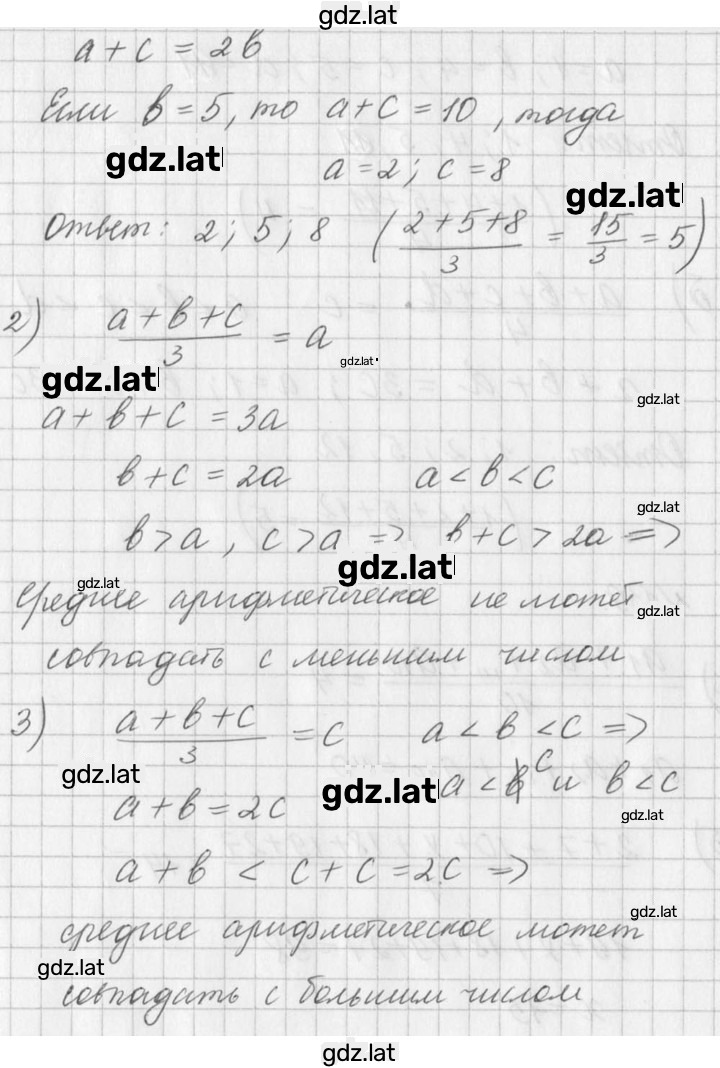 gdz.lat
a + c = 2в
Если в = 5, то a + c = 10, тогда
gdz.lat
a = 2; c = 8
gdz.lat
Ответ: 2; 5; 8 ( (2+5+8)/3 = 15/3 = 5 )
2) (a + в + c)/3 = a
gdz.lat
gdz.lat
gdz.lat
a + в + c = 3a
в + c = 2a a < в < c
gdz.lat
в > a, c > a => в + c > 2a =>
gdz.lat
gdz.lat
среднее арифметическое не может
gdz.lat
совпадать с меньшим числом
3) (a + в + c)/3 = c a < в < c =>
gdz.lat
a < c и в < c
gdz.lat
a + в = 2c
gdz.lat
a + в < c + c = 2c =>
gdz.lat
среднее арифметическое может
gdz.lat
совпадать с большим числом
gdz.lat